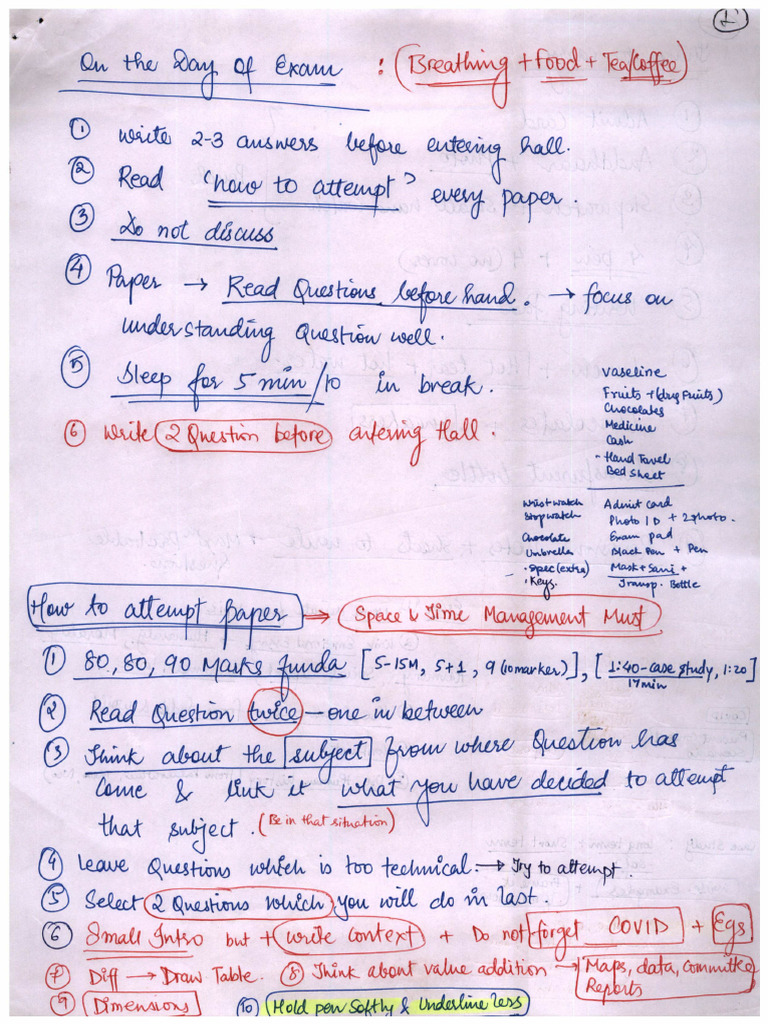 1
On the Day of Exam : (Breathing + food + Tea/Coffee)
① Write 2-3 answers before entering hall.
② Read "how to attempt" every paper.
③ Do not discuss
④ Paper → Read Questions before hand. → focus on
understanding Question well.
⑤ Sleep for 5 min/10 in break.
⑥ Write 2 Question before entering Hall.
Vaseline
Fruits + (dry fruits)
Chocolates
Medicine
Cash
- Hand Towel
Bed Sheet
Wrist watch Admit card
Stopwatch Photo ID + 2 photo.
Chocolate Exam pad
Umbrella Black Pen + Pen
• Spec (extra) Mask + Sani +
• Keys. Transp. Bottle
How to attempt paper ⇒ Space & Time Management Must
① 80, 80, 90 Marks funda [5-15M, 5+1, 9 (10marker)], [1:40-case study, 1:20]
17min
② Read Question twice — one in between
③ Think about the subject from where Question has
come & link it what you have decided to attempt
that subject. (Be in that situation)
④ Leave Questions which is too technical. → Try to attempt.
⑤ Select 2 Questions which you will do in last.
⑥ Small Intro but + write context + Do not forget COVID + Egs
⑦ Diff → Draw Table. ⑧ Think about value addition → Maps, data, Committee
Reports
⑨ Dimensions ⑩ Hold pen Softly & Underline less